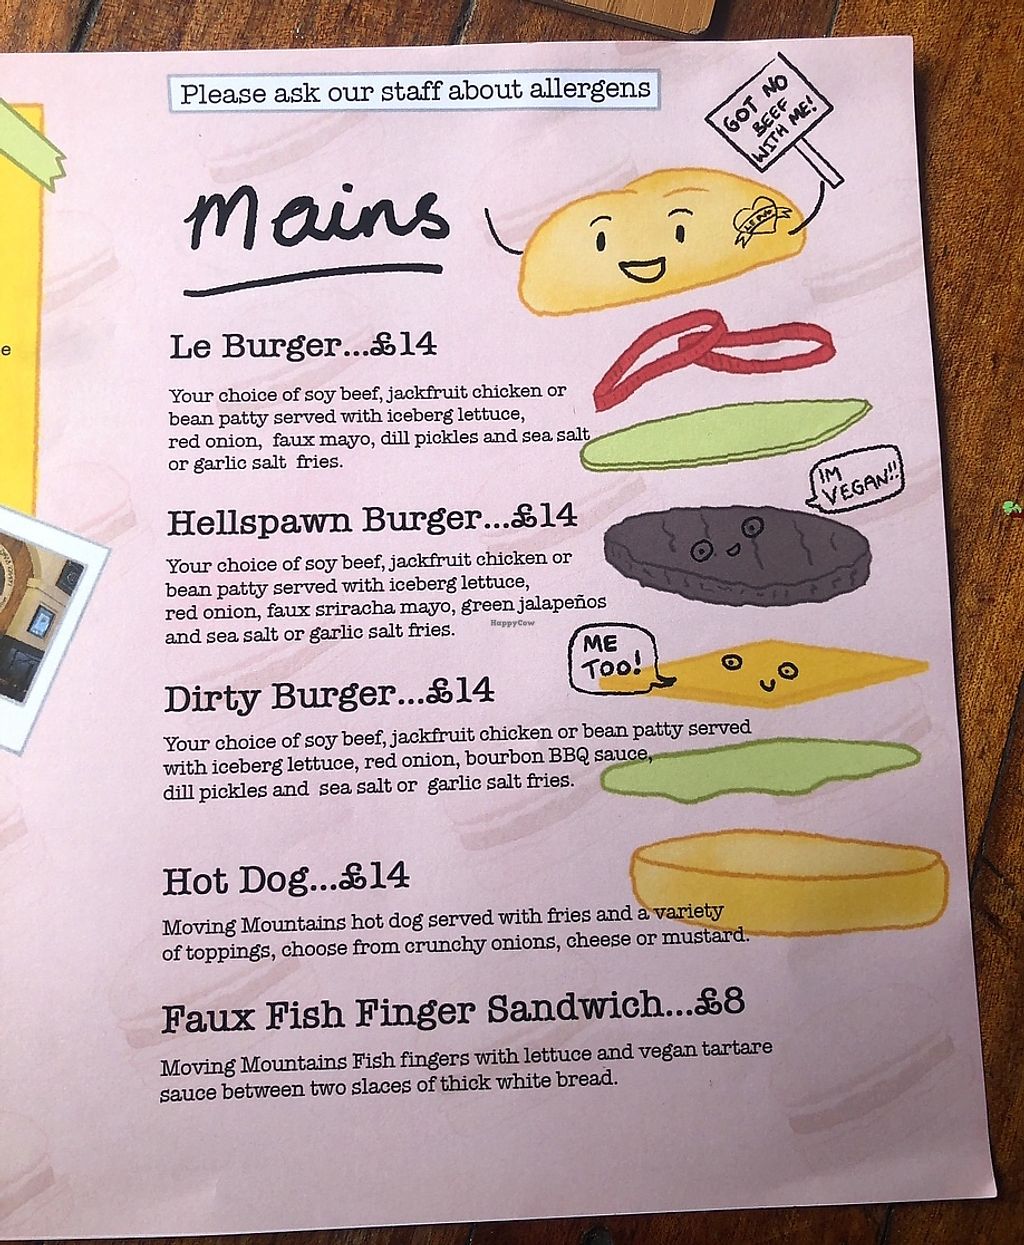 Please ask our staff about allergens
GOT NO
BEEF
WITH ME!
Mains
Le Burger...£14
Your choice of soy beef, jackfruit chicken or
bean patty served with iceberg lettuce,
red onion, faux mayo, dill pickles and sea salt
or garlic salt fries.
IM
VEGAN!!
Hellspawn Burger...£14
Your choice of soy beef, jackfruit chicken or
bean patty served with iceberg lettuce,
red onion, faux sriracha mayo, green jalapeños
and sea salt or garlic salt fries.
HappyCow
ME
TOO!
Dirty Burger...£14
Your choice of soy beef, jackfruit chicken or bean patty served
with iceberg lettuce, red onion, bourbon BBQ sauce,
dill pickles and sea salt or garlic salt fries.
Hot Dog...£14
Moving Mountains hot dog served with fries and a variety
of toppings, choose from crunchy onions, cheese or mustard.
Faux Fish Finger Sandwich...£8
Moving Mountains Fish fingers with lettuce and vegan tartare
sauce between two slaces of thick white bread.